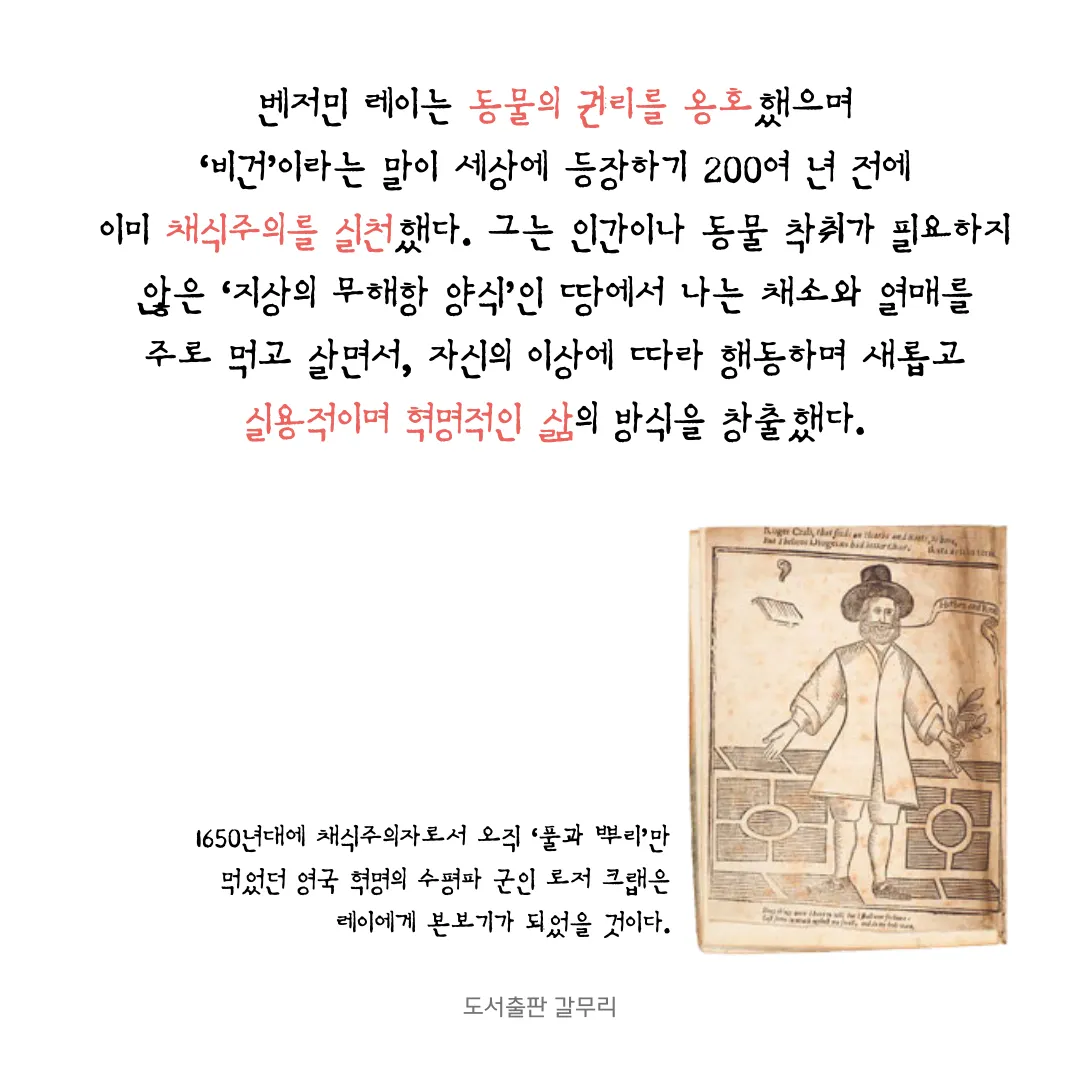 벤저민 레이는 동물의 권리를 옹호했으며
‘비건’이라는 말이 세상에 등장하기 200여 년 전에
이미 채식주의를 실천했다. 그는 인간이나 동물 착취가 필요하지
않은 ‘지상의 무해항 양식’인 땅에서 나는 채소와 열매를
주로 먹고 살면서, 자신의 이상에 따라 행동하며 새롭고
실용적이며 혁명적인 삶의 방식을 창출했다.
Roger Crab, that feeds on Hearbs and Roots, is here,
But I believe Diogenes had better Chear.
Hearbes and
1650년대에 채식주의자로서 오직 ‘풀과 뿌리’만
먹었던 영국 혁명의 수평파 군인 로저 크랩은
레이에게 본보기가 되었을 것이다.
도서출판 갈무리